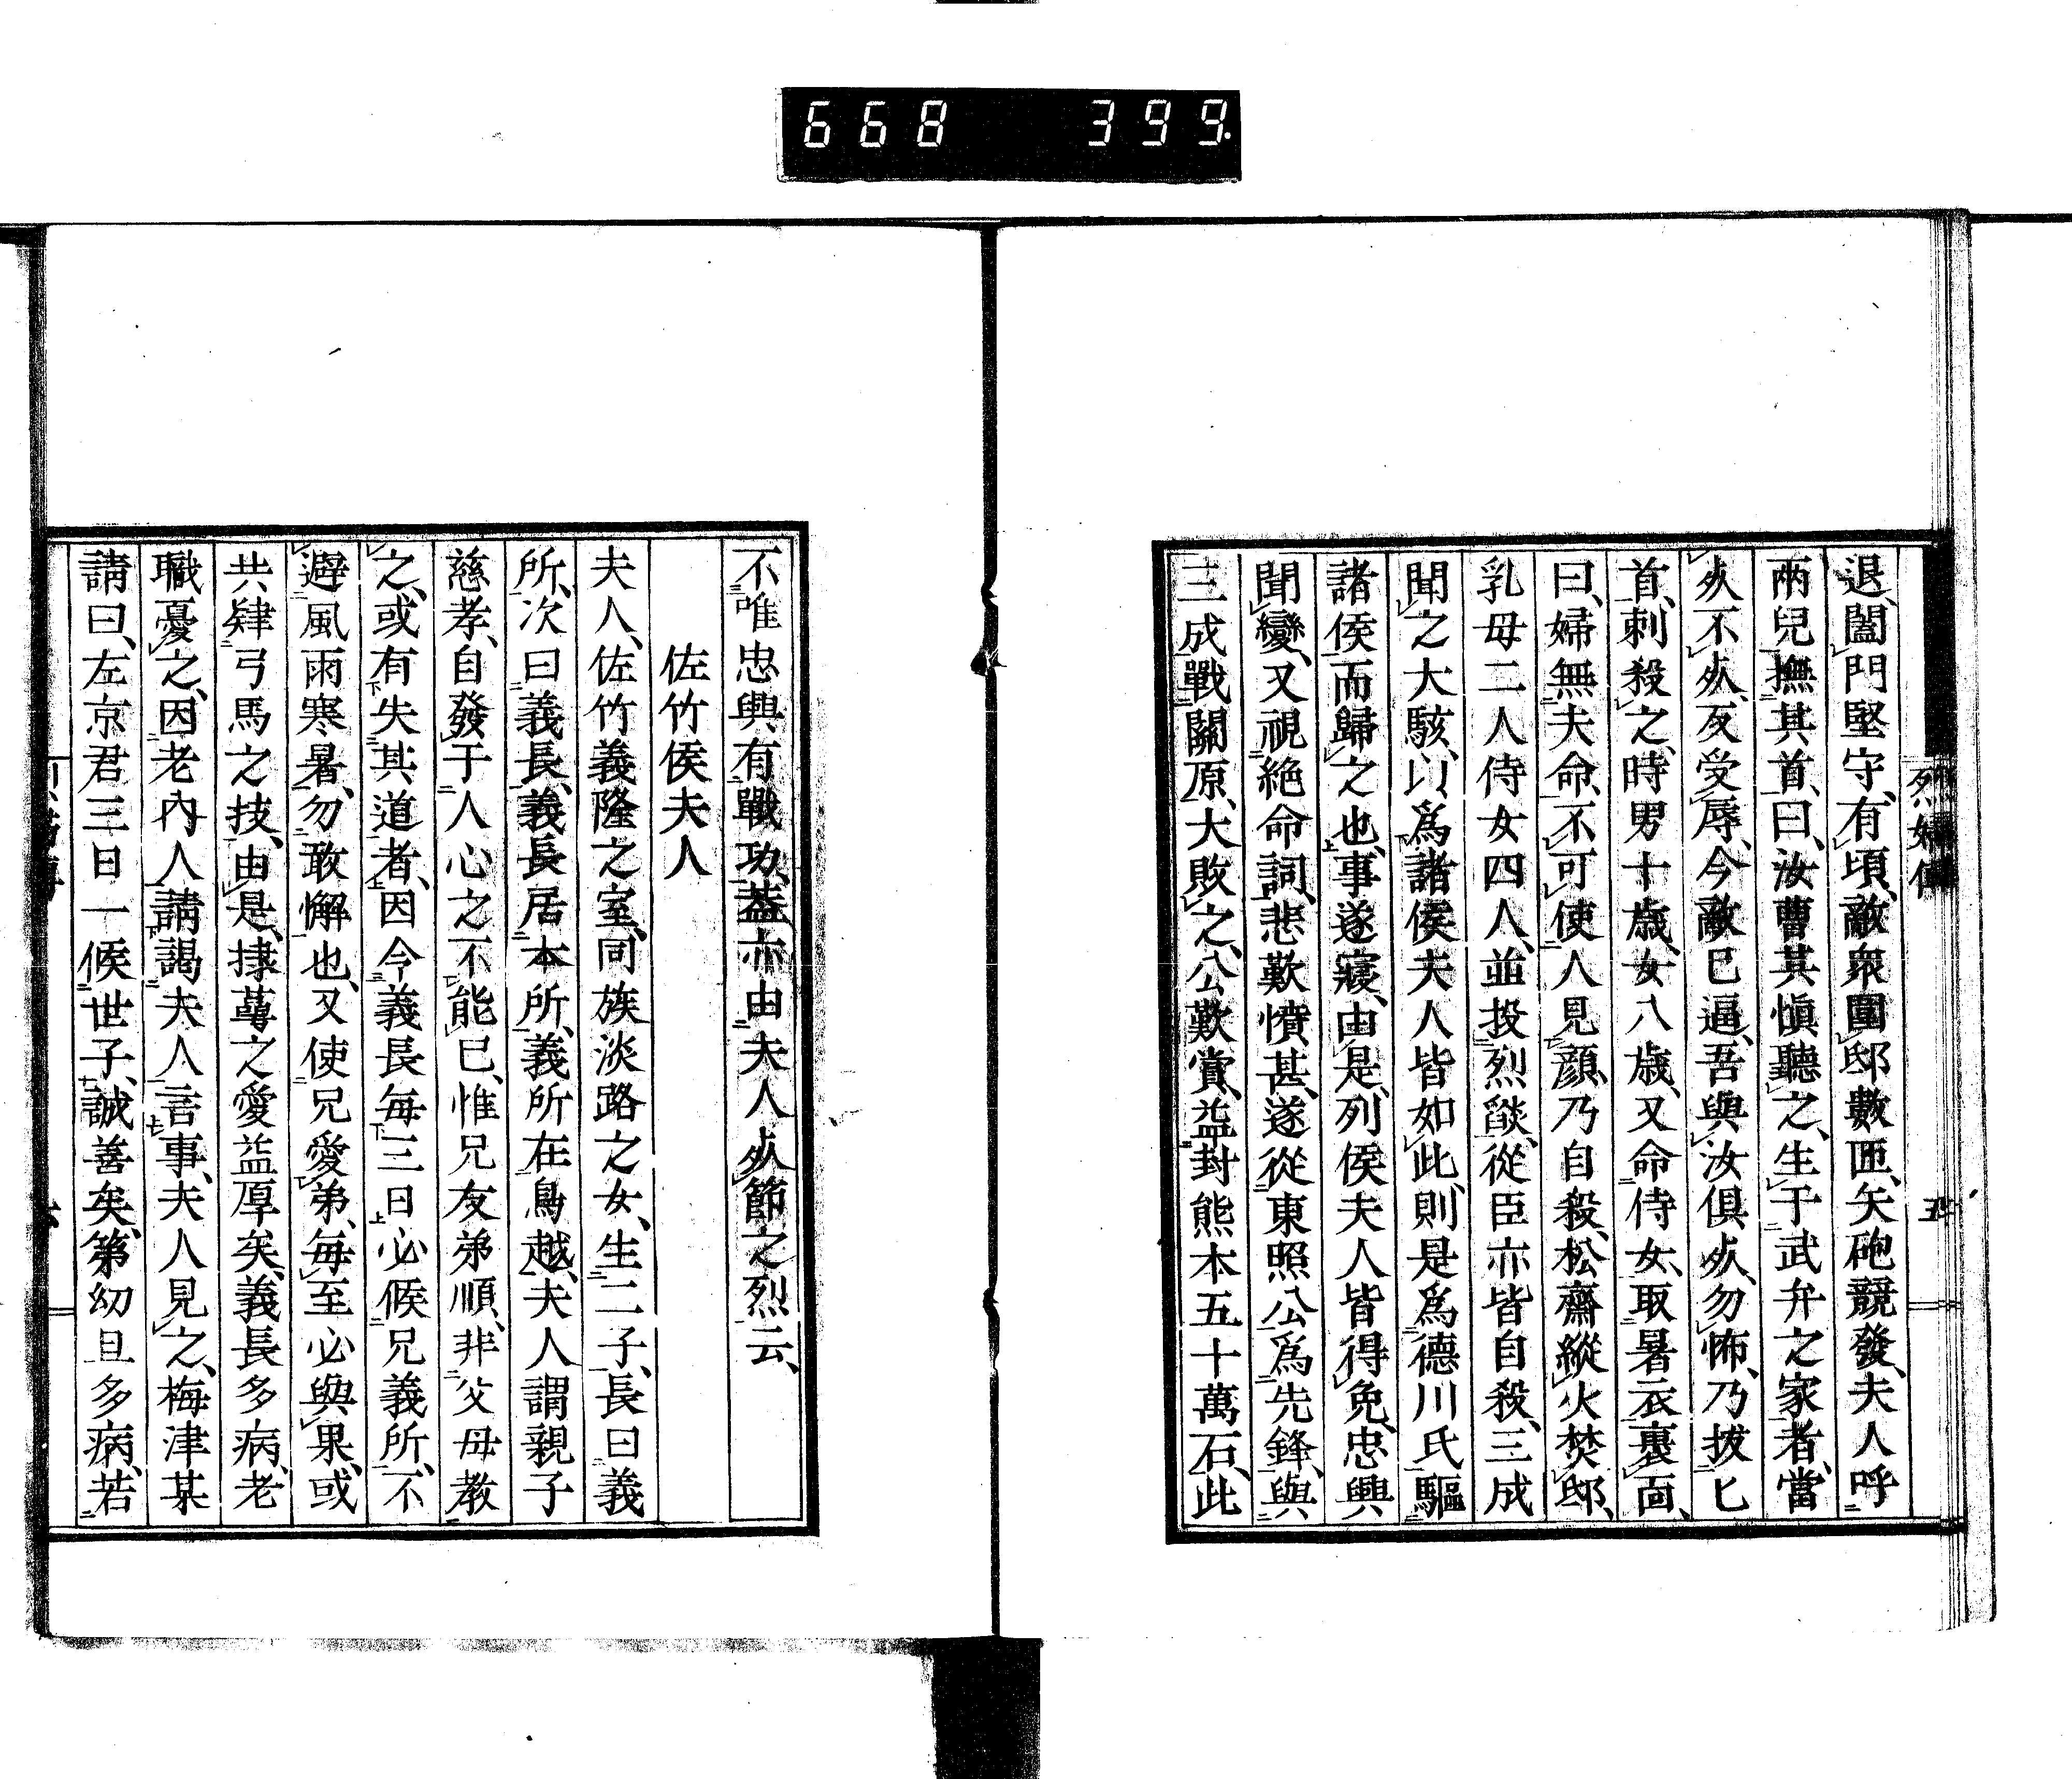 668 399
烈婦傳 五
退、闔門堅守、有頃、敵衆圍邸數匝、矢砲競發、夫人呼
兩兒撫其首、曰、汝曹其愼聽之、生于武弁之家者、當
死不死、反受辱、今敵已逼、吾與汝俱死、勿怖、乃拔匕
首、刺殺之、時男十歲、女八歲、又命侍女、取暑衣裹面、
曰、婦無夫命、不可使人見顏、乃自殺、松齋縱火焚邸、
乳母二人侍女四人、並投烈燄、從臣亦皆自殺、三成
聞之大駭、以爲諸侯夫人皆如此、則是爲德川氏驅
諸侯而歸之也、事遂寢、由是、列侯夫人皆得免、忠興
聞變、又視絕命詞、悲歎憤甚、遂從東照公爲先鋒、與
三成戰關原、大敗之、公歎賞、益封熊本五十萬石、此
不唯忠興有戰功、蓋亦由夫人死節之烈云、
佐竹侯夫人
夫人、佐竹義隆之室、同族淡路之女、生二子、長曰義
所、次曰義長、義長居本所、義所在鳥越、夫人謂親子
慈孝、自發于人心之不能已、惟兄友弟順、非父母教
之、或有失其道者、因今義長每三日必候兄義所、不
避風雨寒暑、勿敢懈也、又使兄愛弟、每至必與果、或
共肄弓馬之技、由是、棣萼之愛益厚矣、義長多病、老
職憂之、因老內人請謁夫人言事、夫人見之、梅津某
請曰、左京君三日一候世子、誠善矣、第幼且多病、若